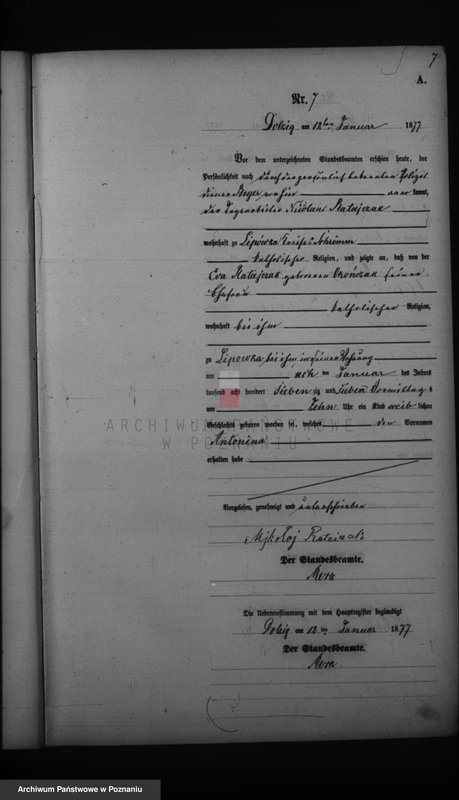 7
A.
Nr. 7
Dolzig am 12ten Januar 1877
Vor dem unterzeichneten Standesbeamten erschien heute, der
Persönlichkeit nach durch den persönlich bekannten Polizei
diener Beyer von hier kannt,
der Tagearbeiter Nicolaus Ratajczak
wohnhaft zu Lipowka Kreises Schrimm
katholischer Religion, und zeigte an, daß von der
Eva Ratajczak geborenen seiner
Ehefrau
katholischer Religion,
wohnhaft bei ihm
zu Lipowka bei ihm in seiner Wohnung
am acht ten Januar des Jahres
tausend acht hundert sieben zig und sieben Vormittags
um Zehn Uhr ein Kind weib lichen
Geschlechts geboren worden sei, welches den Vornamen
Antonina
erhalten habe
Vorgelesen, genehmigt und unterschrieben
Mikołaj Ratajczak
Der Standesbeamte.
Die Uebereinstimmung mit dem Hauptregister beglaubigt
Dolzig am 12ten Januar 1877
Der Standesbeamte.
ARCHIWUM PAŃSTWOWE
W POZNANIU
Archiwum Państwowe w Poznaniu